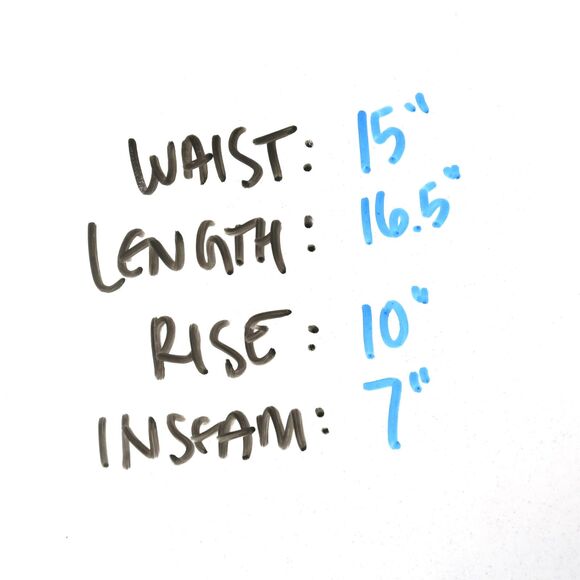 WAIST: 15"
LENGTH: 16.5"
RISE: 10"
INSEAM: 7"